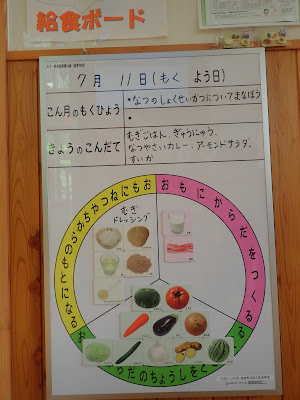 給食ボード
7月 11日(もく よう日)
こん月のもくひょう
・なつのしょくせいかつについてまなぼう
・
きょうのこんだて
むぎごはん、ぎゅうにゅう、
なつやさいカレー、アーモンドサラダ、
すいか
おもにねつやちからのもとになる
おもにからだをつくる
おもにからだのちょうしをととのえる
むぎ
ドレッシング